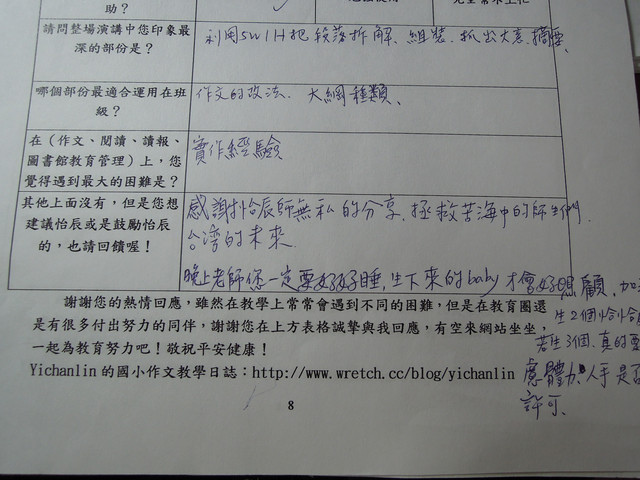 助？
請問整場演講中您印象最
深的部份是？
利用5W1H把段落拆解、組裝、抓出大意、摘要
哪個部份最適合運用在班
級？
作文的改法、大綱種類、
在（作文、閱讀、讀報、
圖書館教育管理）上，您
覺得遇到最大的困難是？
實作經驗
其他上面沒有，但是您想
建議怡辰或是鼓勵怡辰
的，也請回饋喔！
感謝怡辰師無私的分享，拯救苦海中的師生們
台灣的未來
晚上老師您一定要好好睡，生下來的baby才會好照顧，加
謝謝您的熱情回應，雖然在教學上常常會遇到不同的困難，但是在教育圈還
是有很多付出努力的同伴，謝謝您在上方表格誠摯與我回應，有空來網站坐坐，
生2個恰恰
一起為教育努力吧！敬祝平安健康！
若生3個，真的要
Yichanlin 的國小作文教學日誌：http://www.wretch.cc/blog/yichanlin
慮體力、人手是否
許可、
8